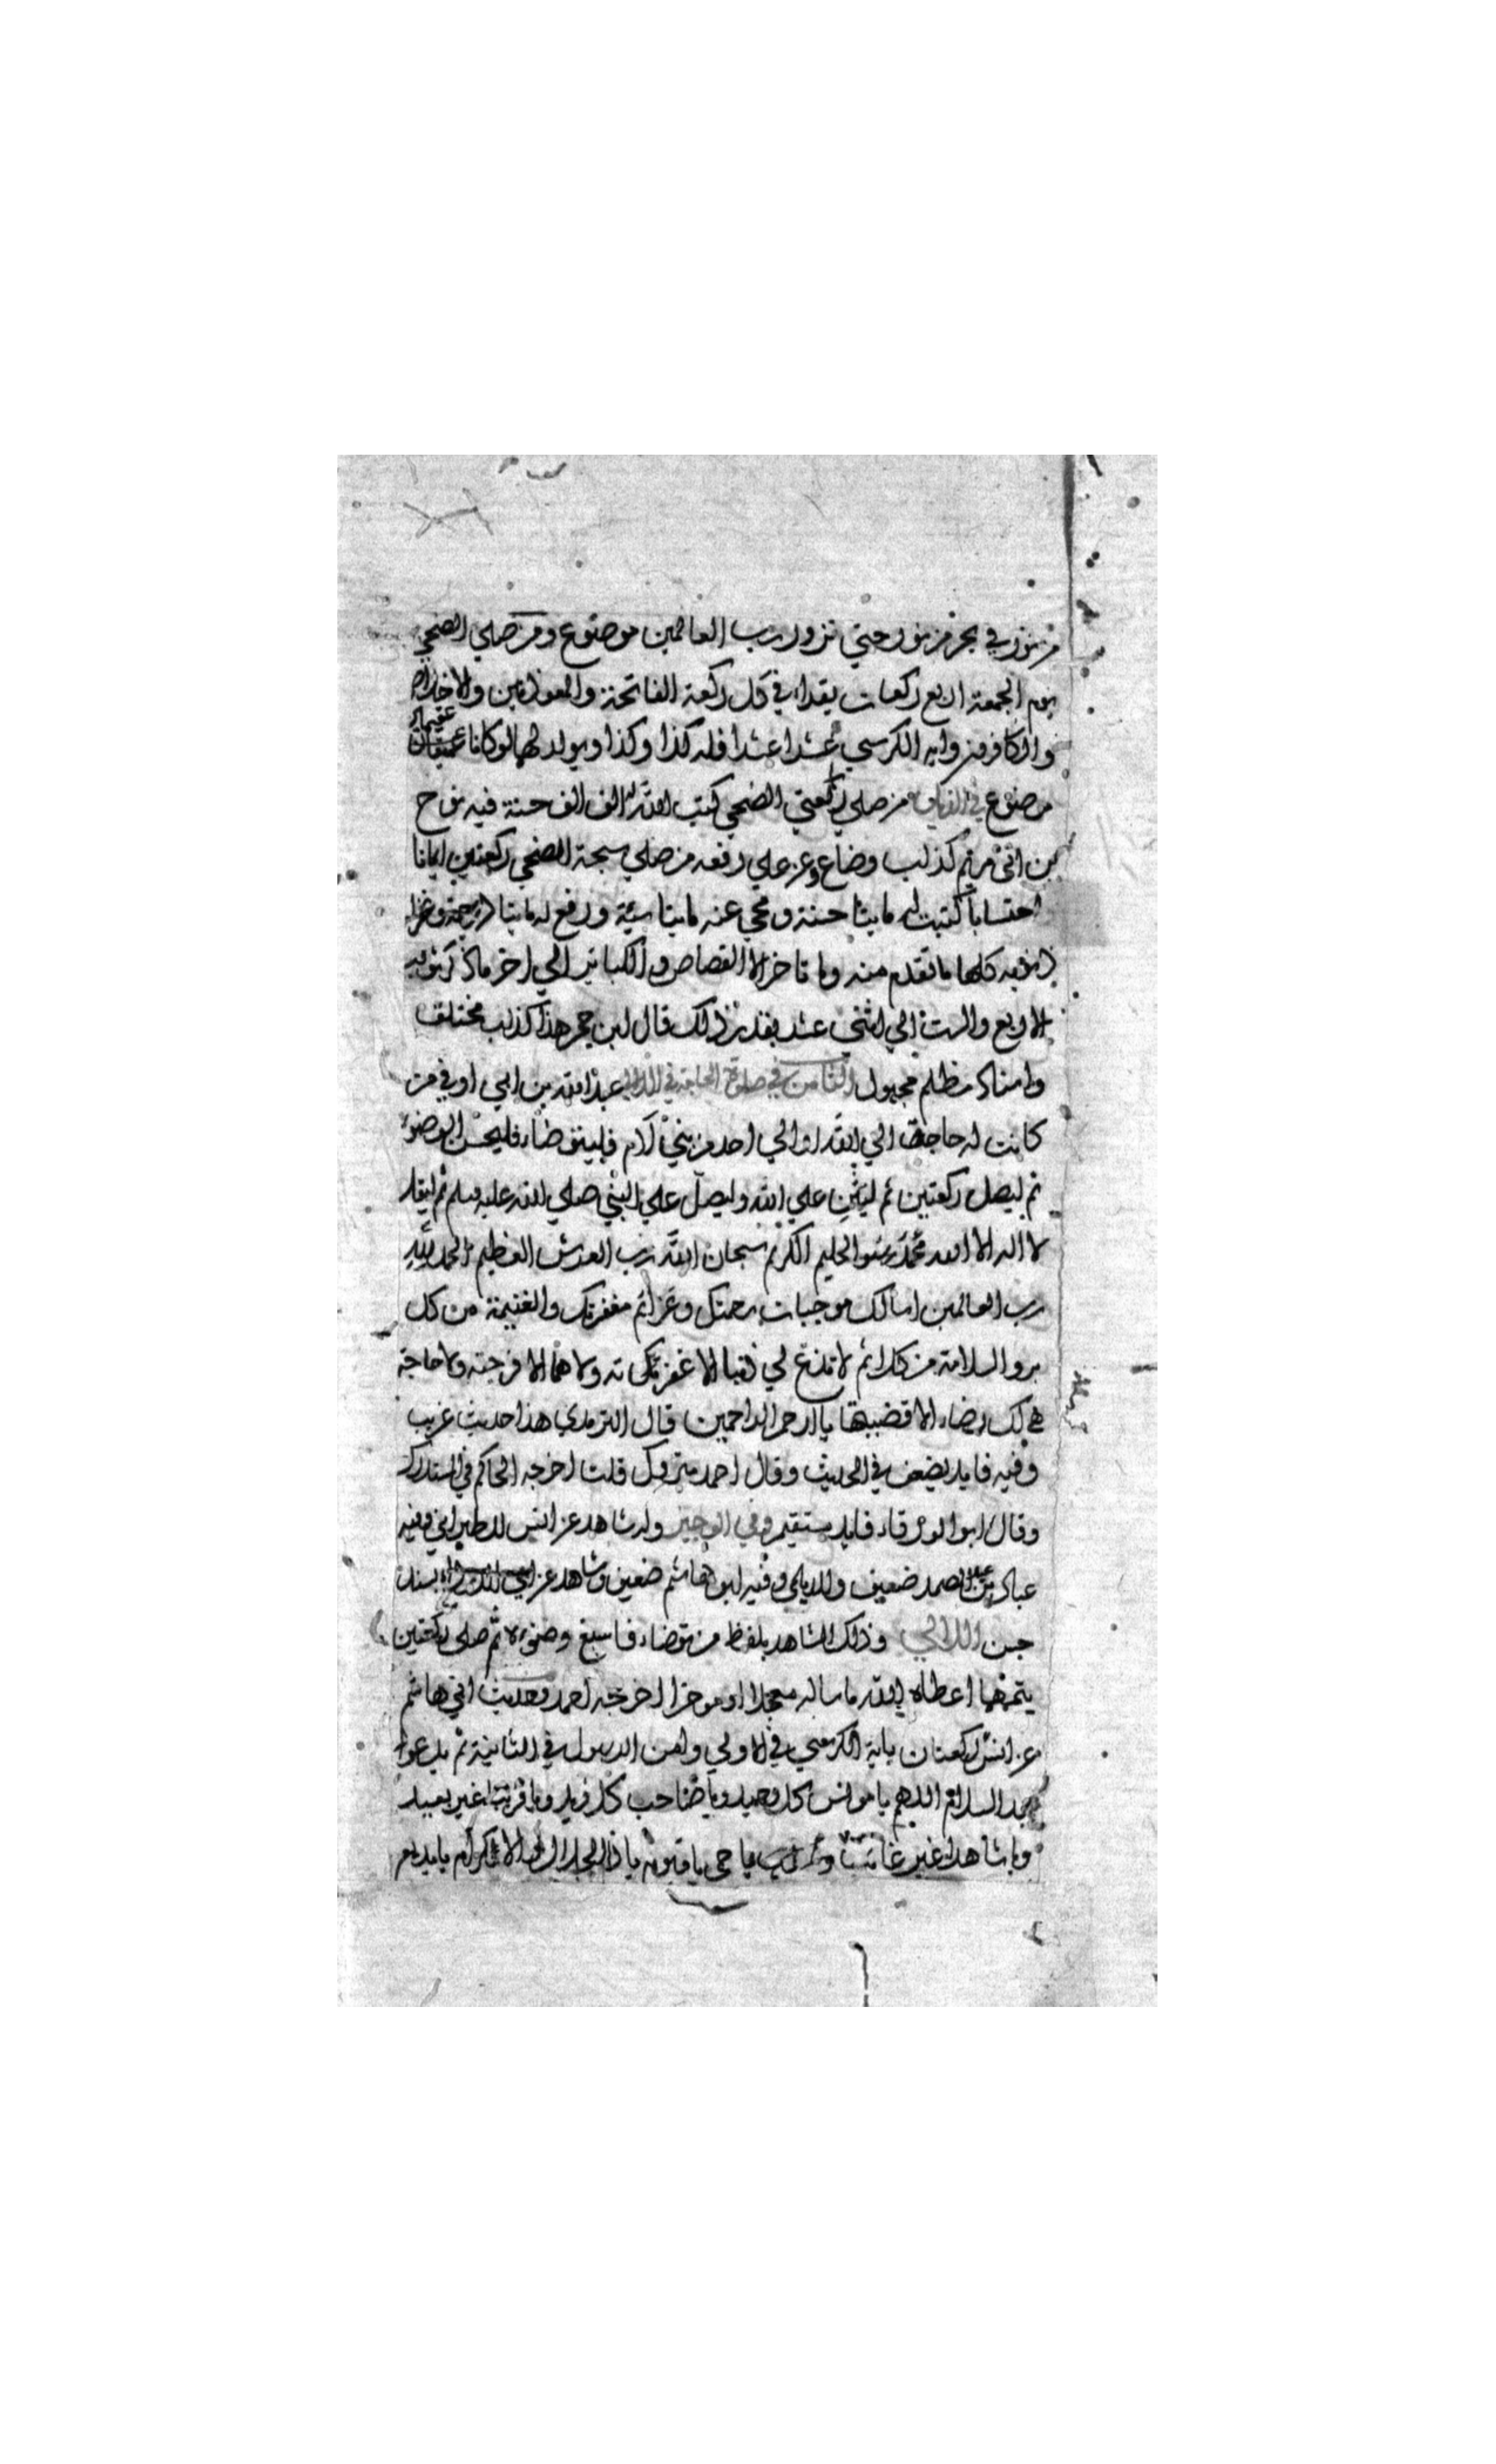 من نور في بحر من نور حتى تزور رب العالمين موضوع ومن صلي الضحي
يوم الجمعة اربع ركعات يقراء في كل ركعة الفاتحة والمعوذتين والاخلاص
والكافرون واية الكرسي عشرا عشرا فله كذا وكذا ويولد لهما لو كانا عقيمان
موضوع في من صلي ركعتي الضحي كتب الله له الف الف حسنة فيه نوح
بن ابي مريم كذاب وضاع وعن علي رفعه من صلي سبحة الضحي ركعتين ايمانا
احتسابا كتبت له مايتا حسنة ومحي عنه مايتا سيئة ورفع له مايتا درجة وغفر له
ذنوبه كلها ما تقدم منه وما تاخر الا القصاص والكباير الي اخر ما ذكر ثوب
الاربع والست الي اثني عشر بقدر ذلك قال ابن حجر هذا كذب مختلق
واسناد مظلم مجهول الثامن في صلوة الحاجة في اللالي عبد الله بن ابي اوفي من
كانت له حاجة الي الله او الي احد من بني آدم فليتوضاء فليحسن الوضوء
ثم ليصل ركعتين ثم ليثن علي الله وليصل علي النبي صلي الله عليه وسلم ثم ليقل
لا اله الا الله الحليم الكريم سبحان الله رب العرش العظيم الحمد لله
رب العالمين اسالك موجبات رحمتك وعزائم مغفرتك والغنيمة من كل
بر والسلامة من كل اثم لا تدع لي ذنبا الا غفرته ولا هما الا فرجته ولا حاجة
هي لك رضاء الا قضيتها يا ارحم الراحمين قال الترمذي هذا حديث غريب
وفيه فايد يضعف في الحديث وقال احمد متروك قلت اخرجه الحاكم في المستدرك
وقال ابو الورقاء فايد مستقيم وفي الوجيز وله شاهد عن انس للطبراني وفيه
عباد بن عبد الصمد ضعيف وللديلمي وفيه ابو هاشم ضعيف وشاهد عن ابي الدرداء بسند
حسن اللالي وذلك الشاهد بلفظ من توضاء فاسبغ وضوءه ثم صلى ركعتين
يتمهما اعطاه الله ما ساله معجلا او موخرا اخرجه احمد وحديث ابي هاشم
عن انس ركعتان باية الكرسي في الاولي وامن الرسول في الثانية ثم يدعوا
بعد السلام اللهم يا مونس كل وحيد ويا صاحب كل فريد ويا قريبا غير بعيد
ويا شاهدا غير غائب يا حي يا قيوم يا ذا الجلال والاكرام يا بديع